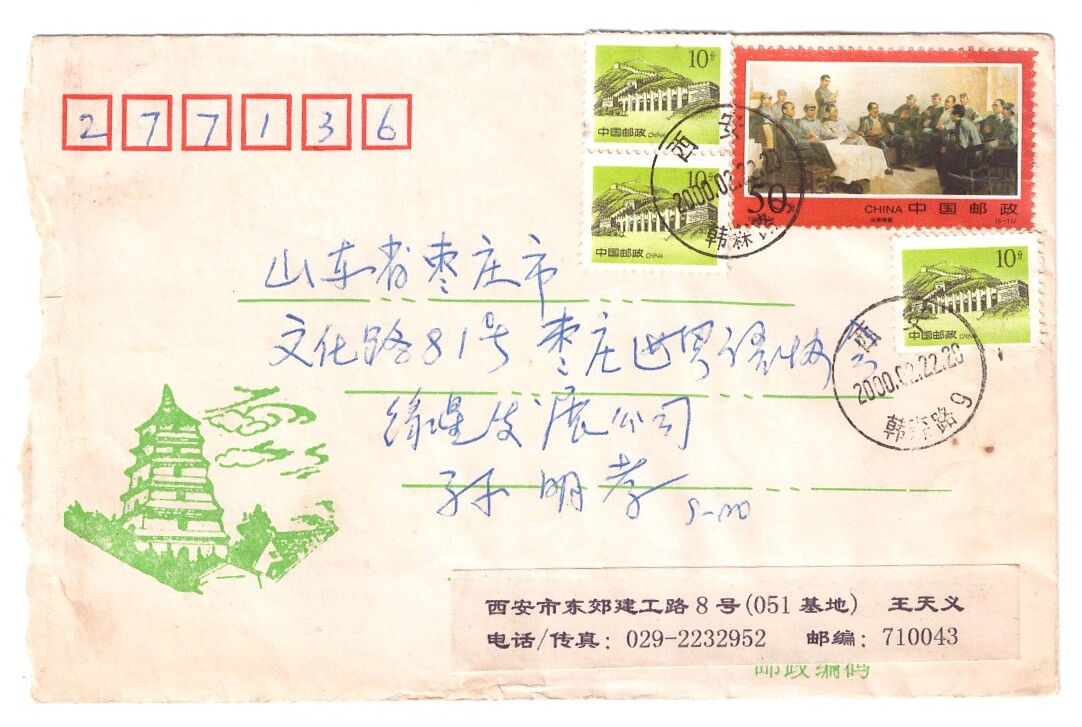 277136
10分
中国邮政 CHINA
10分
中国邮政 CHINA
50
CHINA 中国邮政
10分
中国邮政 CHINA
西安
2000.02.22.20
韩森路
西安
2000.02.22.20
韩森路 9
山东省枣庄市
文化路81号 枣庄世界语协会
绿星发展公司
孙明孝
西安市东郊建工路8号(051基地) 王天义
电话/传真: 029-2232952 邮编: 710043
邮政编码